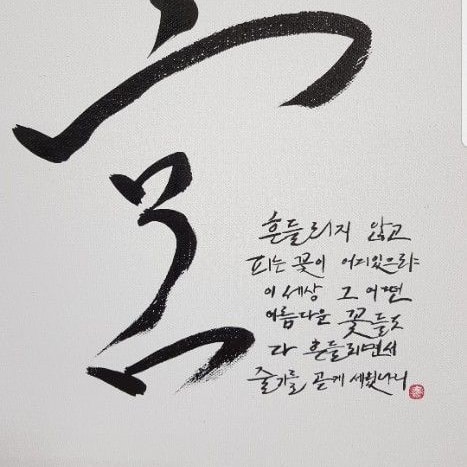 흔들리지 않고
피는 꽃이 어디있으랴
이 세상 그 어떤
아름다운 꽃들도
다 흔들리면서
줄기를 곧게 세웠나니